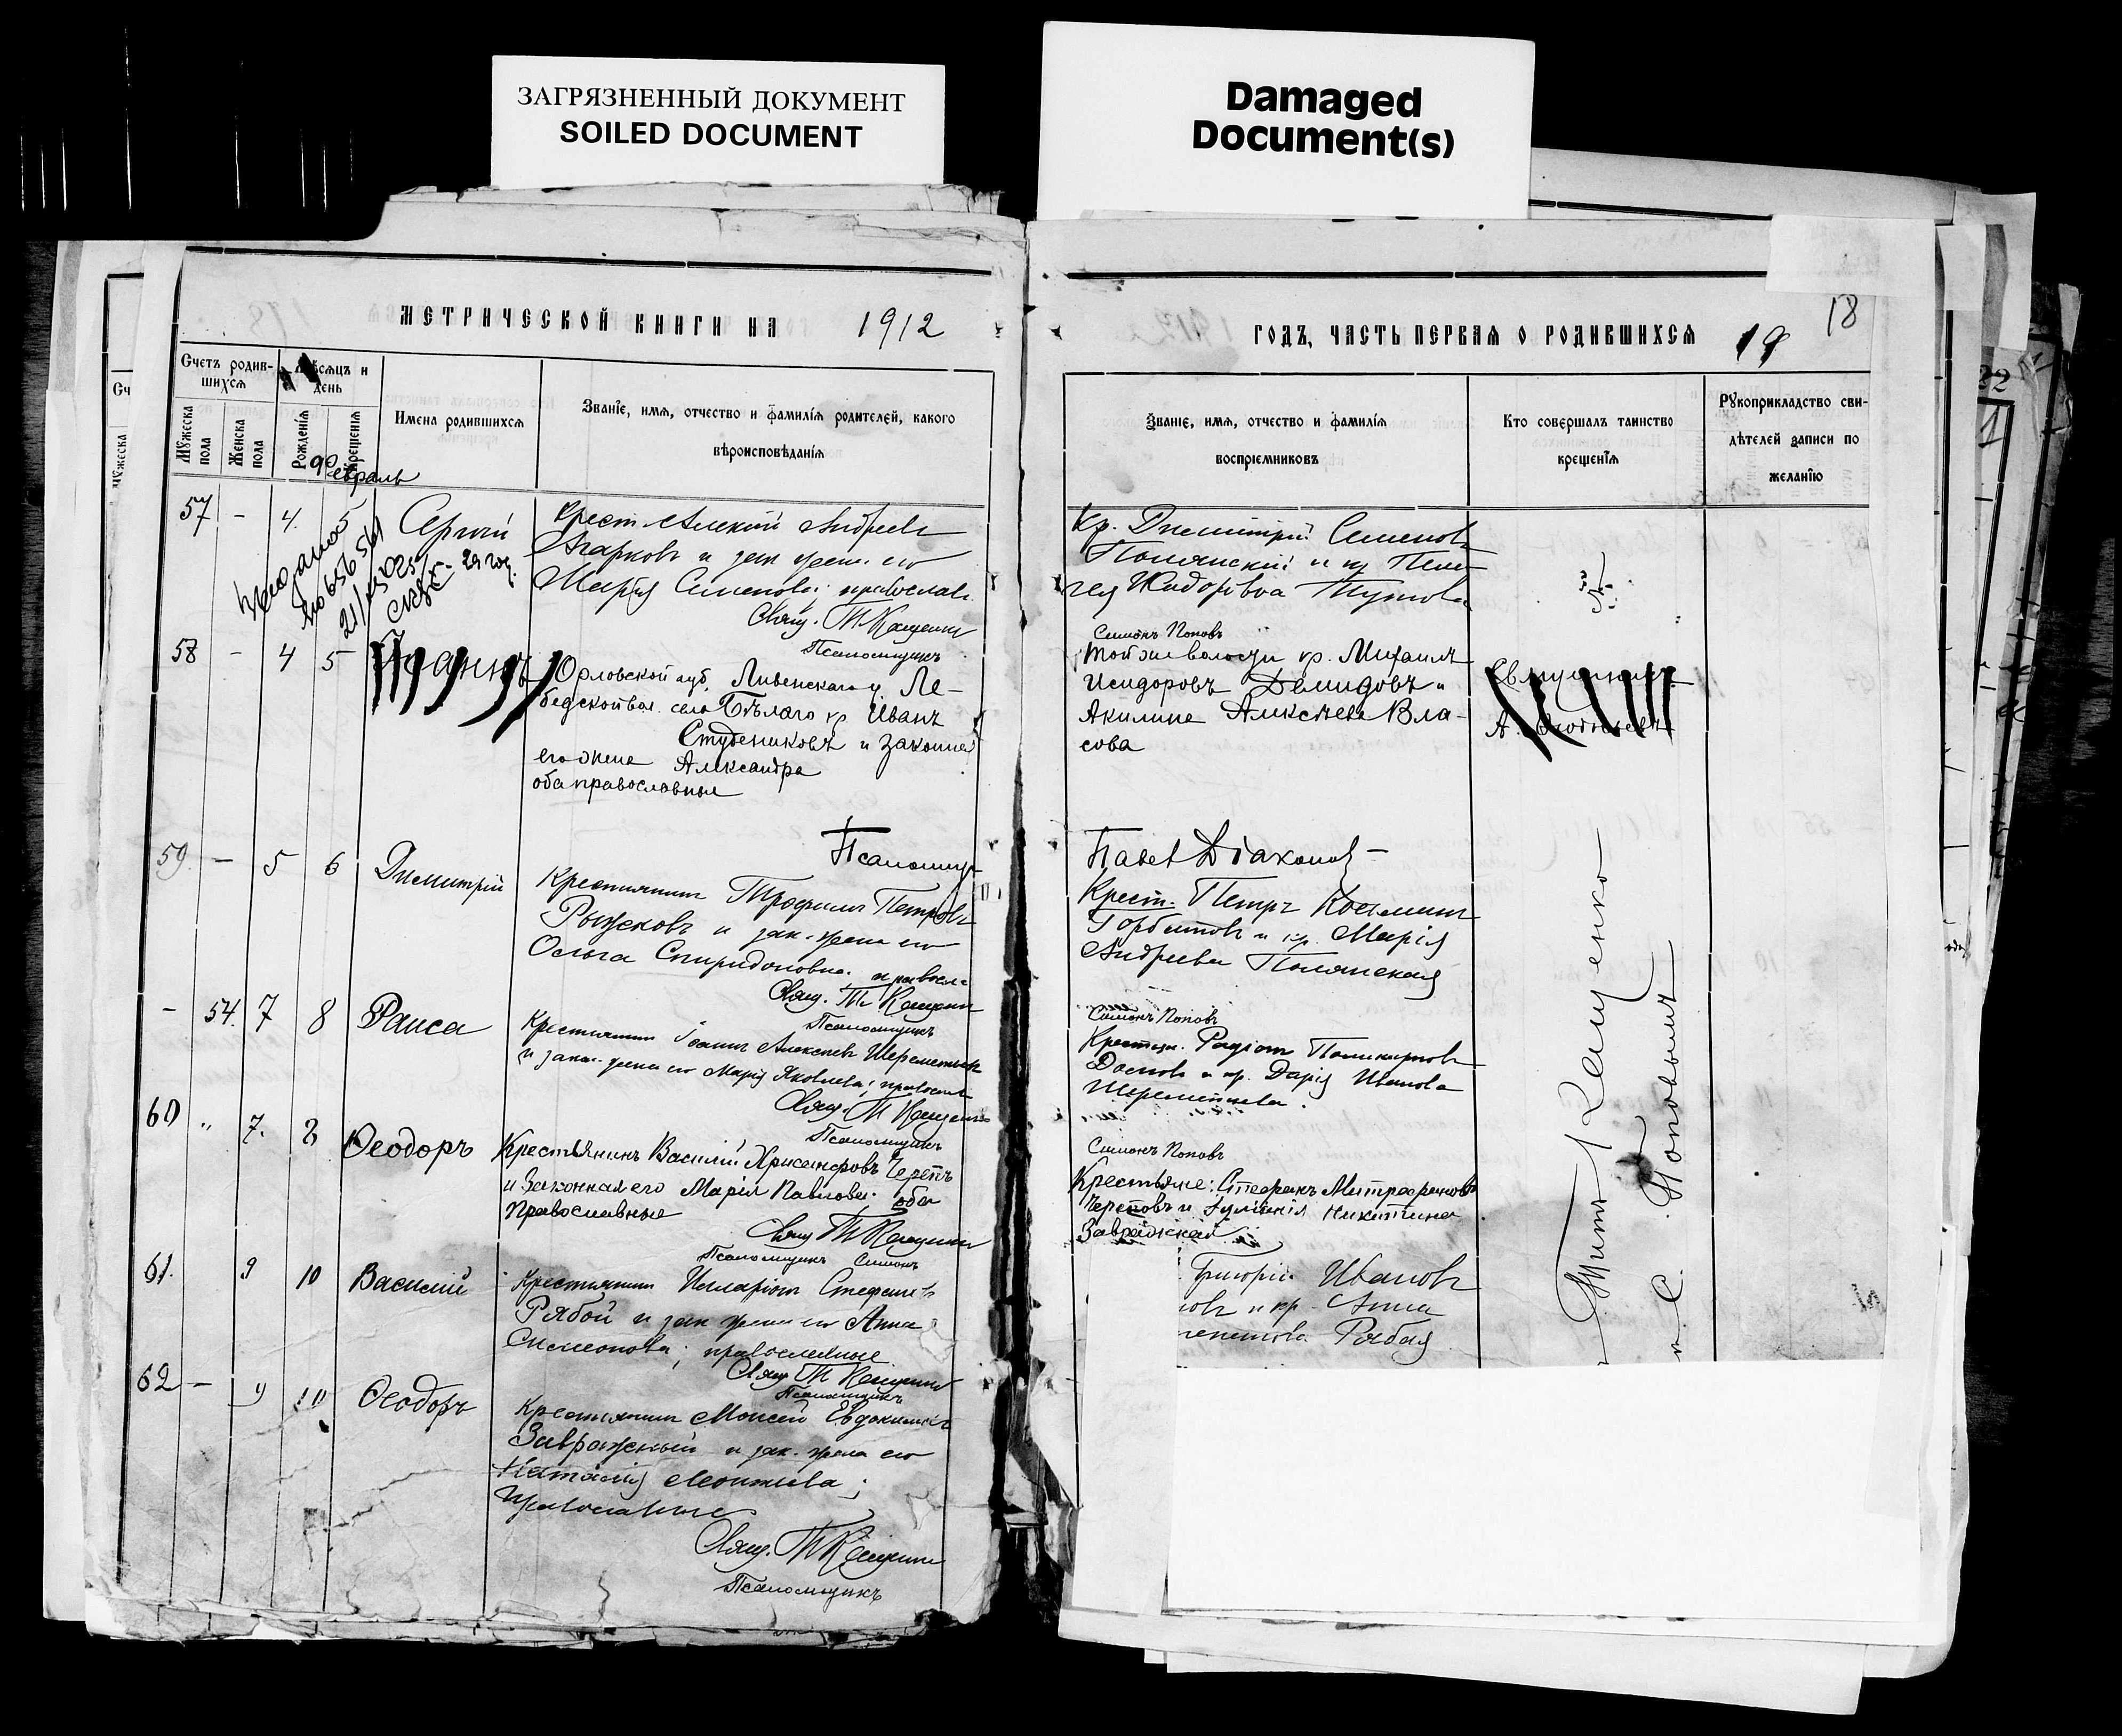 ЗАГРЯЗНЕННЫЙ ДОКУМЕНТ
SOILED DOCUMENT
Damaged
Document(s)
МЕТРИЧЕСКОЙ КНИГИ НА 1912
Счетъ родив-
шихся
Мѣсяцъ и
день
Мужеска
пола
Женска
пола
Рожденія
Крещенія
Имена родившихся
Званіе, имя, отчество и фамилія родителей, какого
вѣроисповѣданія
Февраль
57 - 4. 5 Сергій
Крест. Алексій Андреевъ
Агарковъ и зак жена его
Марія Семенова; православ.
Свящ. Т Кащенко
Псаломщикъ
58 - 4 5
Орловской губ, Ливенскаго у. Ле-
бедской вол. села Бѣлаго кр Иванъ
Студениковъ и законная
его жена Александра
оба православныя
Псаломщ
59. - 5 6 Димитрій
Крестьянинъ Трофимъ Петровъ
Рыжковъ и зак. жена его
Ольга Спиридоновна. правосл.
Свящ. Т Кащенко
Псаломщикъ
- 54. 7 8 Раиса
Крестьянинъ Іоаннъ Алексѣевъ Шереметьевъ
и зак. жена его Марія Яковлева; правосл
Свящ. Т Кащенко
Псаломщикъ
60 " 7. 8 Ѳеодоръ
Крестьянинъ Василій Хрисанфовъ Черепъ
и Законная его Марія Павлова. оба
Православные
Свящ Т Кащенко
Псаломщикъ Симонъ
61. 9 10 Василій
Крестьянинъ Иларіонъ Стефан
Рябой и зак жена его Анна
Симеонова; православные
Свящ Т Кащенко
Псаломщикъ
62 - 9 10 Ѳеодоръ
Крестьянинъ Моисей Евдокимовъ
Завражный и зак. жена его
Наталія Леонтиева;
Православные
Свящ. Т Кащенко
Псаломщикъ
18
ГОДЪ, ЧАСТЬ ПЕРВАЯ О РОДИВШИХСЯ
Званіе, имя, отчество и фамилія
воспріемниковъ
Кто совершалъ таинство
крещенія
Рукоприкладство сви-
дѣтелей записи по
желанію
Кр. Димитрій Семеновъ
Полянскій и кр Пела-
гея
Симонъ Поповъ
Той же волости кр. Михаилъ
Исидоровъ Демидовъ и
Акилина Алексѣева Вла-
сова
Павел Діаконов
Крест. Петръ Косминъ
Горбатовъ и кр. Марія
Андреева Полянская
Симонъ Поповъ
Крестьян. Родіонъ Поликарповъ
и кр. Дарія Иванова
Шереметьева
Симонъ Поповъ
Крестьяне: Стефанъ Митрофановъ
Череповъ и Никитина
Завражская
Григорій Ивановъ
овъ и кр. Анна
Рябая
Титъ Кащенко
С. Поповымъ